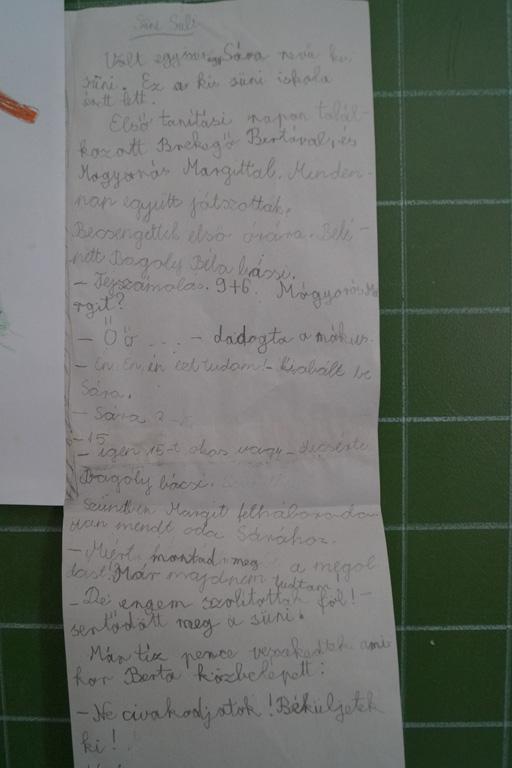 Süni Suli
Volt egyszer egy Sára nevű kis
süni. Ez a kis süni iskolás
lett.
Első tanítási napon talál-
kozott Brekegő Bertával, és
Mogyorós Margittal. Minden-
nap együtt játszottak.
Becsengettek első órára. Belé-
pett Bagoly Béla bácsi.
– Fejszámolás. 9+6. Mogyorós Ma
rgit?
– Ő ő .... – dadogta a mókus.
– Én, én, én ezt tudom! – kiabált be
Sára.
– Sára?
– 15
– igen 15-t, okos vagy – dicsérte
Bagoly bácsi.
Szünetben Margit felháborodo
van mendt oda Sárához.
– Miért montad meg a megol
dást! Már majdnem tudtam
– De engem szolítottak föl! –
sértődött meg a süni.
Mán tíz perce veszekedtek ami
kor Berta közbelépett:
– Ne civakodjatok! Béküljetek
ki!